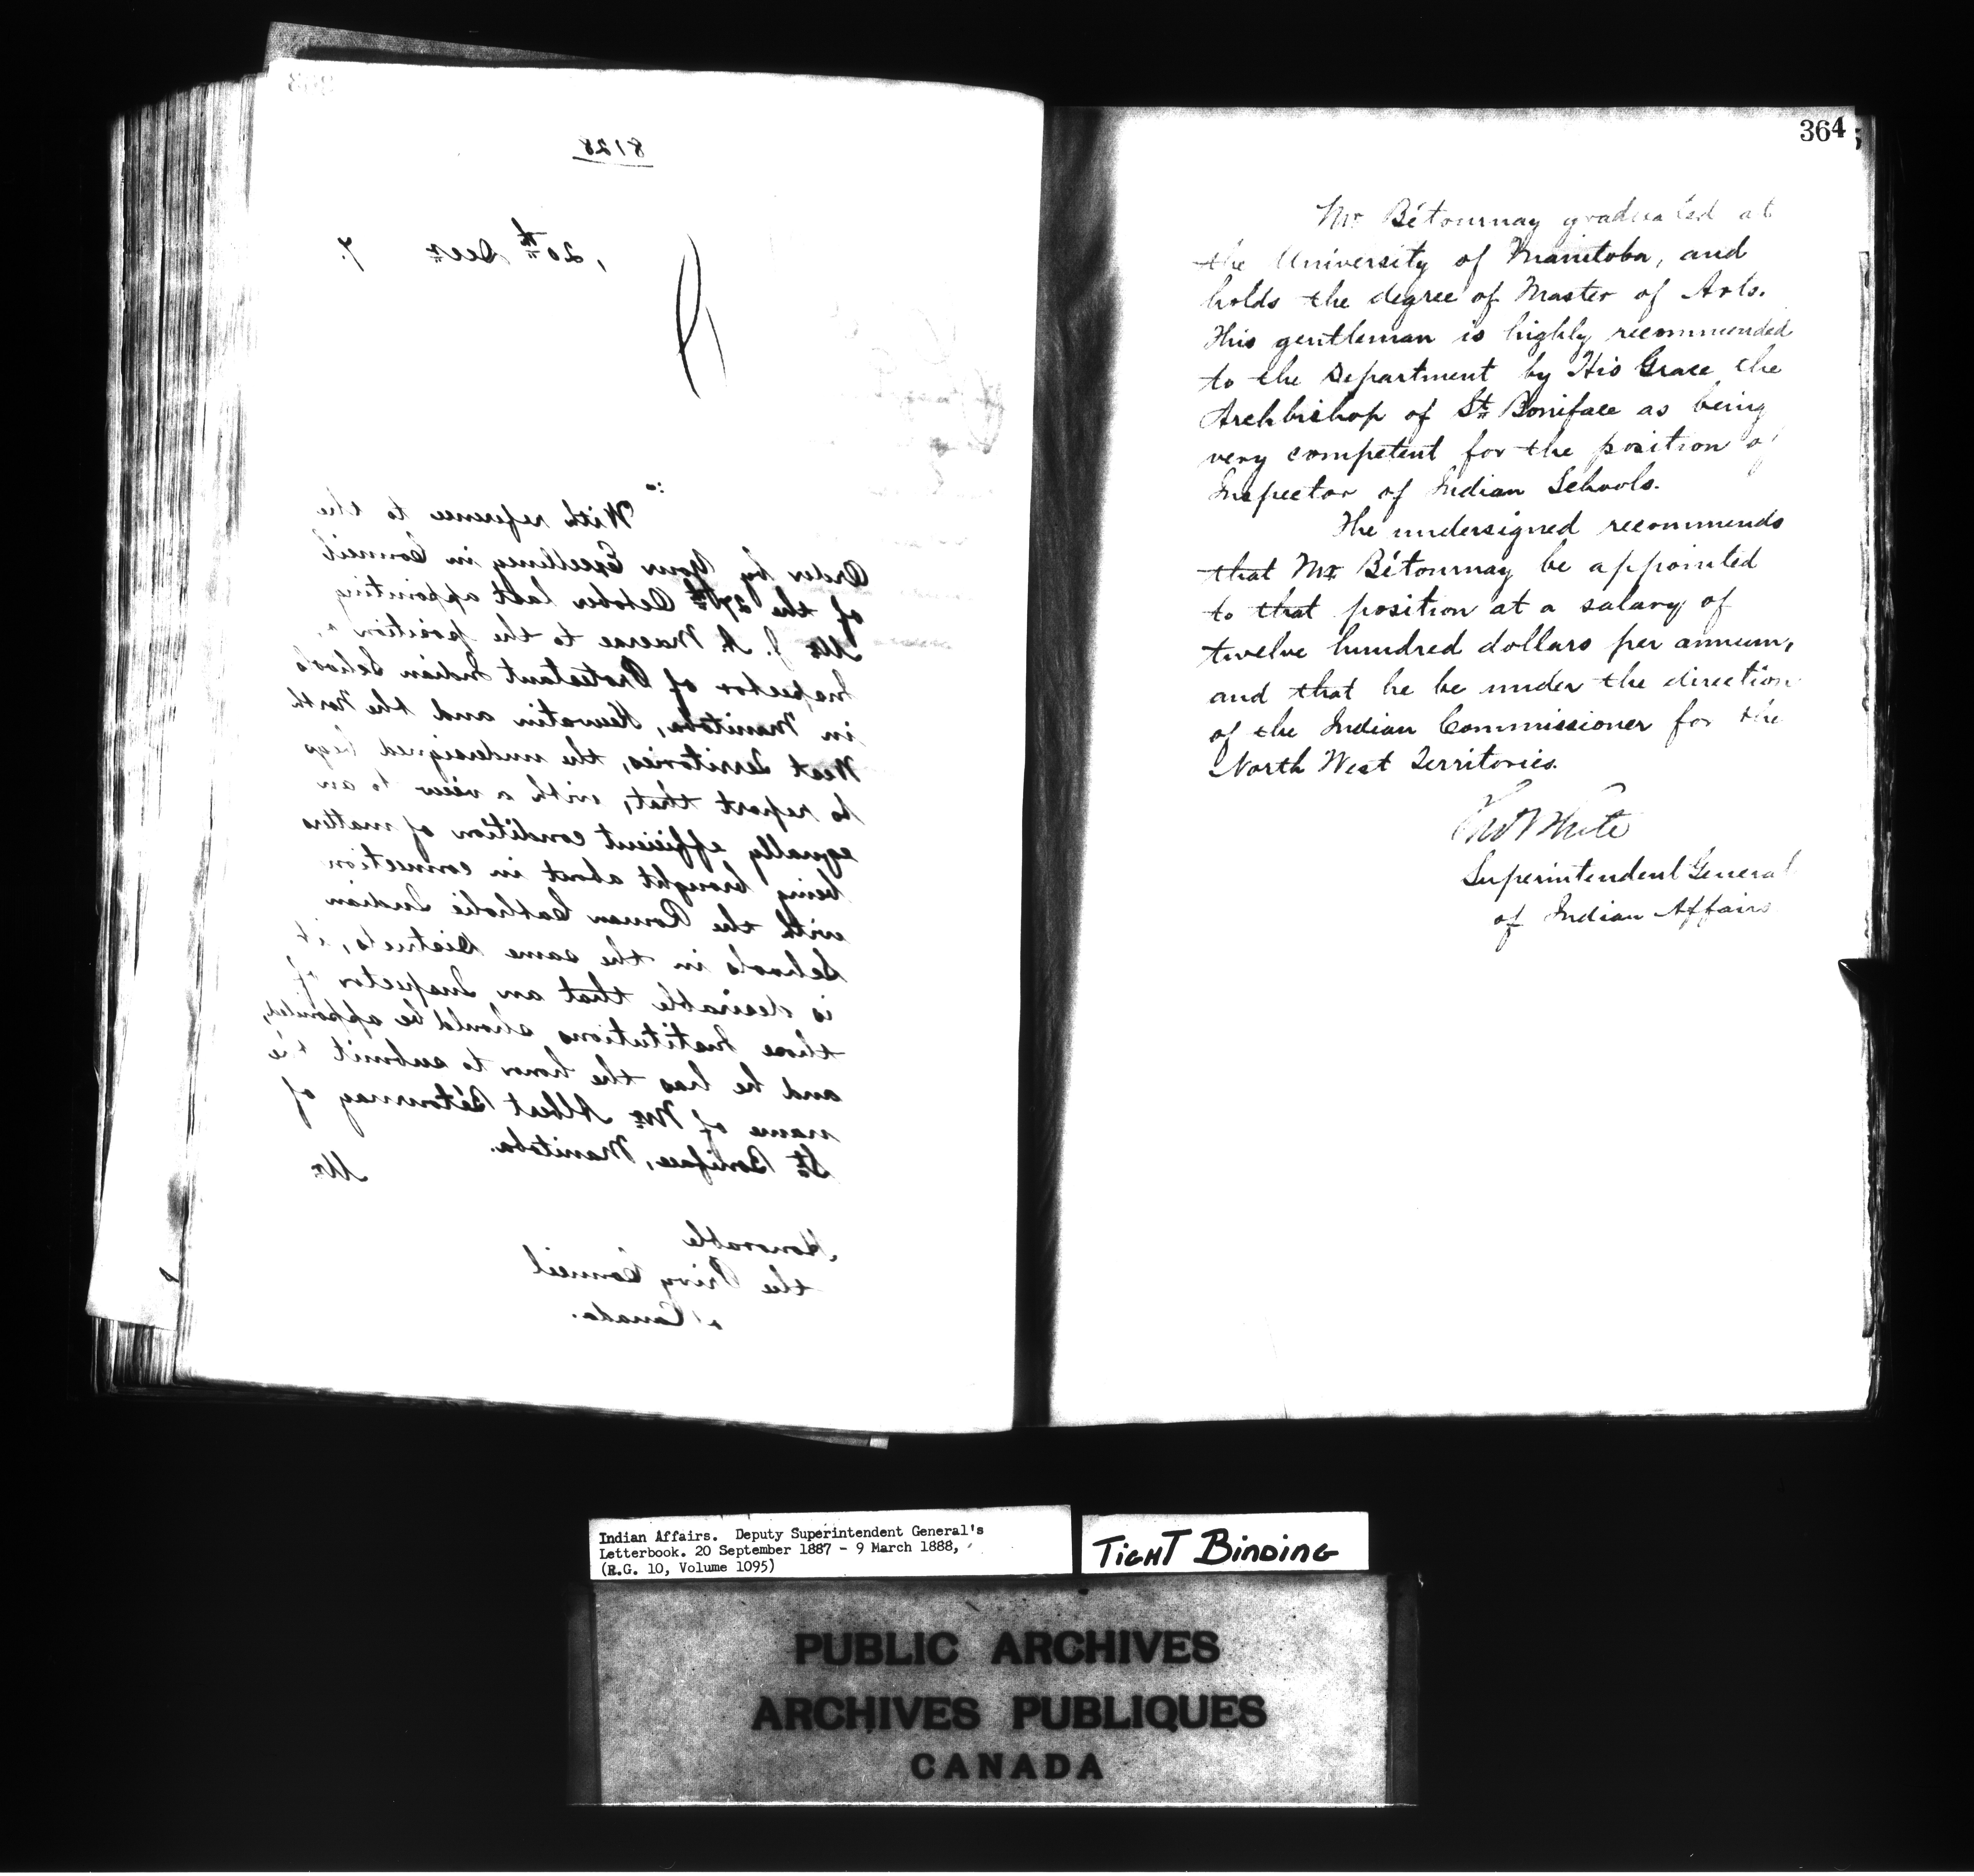 363
8128
, 20th Decr 7.
With reference to the
Order by Your Excellency in Council
of the October last appointing
Mr J. A. Macrae to the position
Inspector of Protestant Indian Schools
in Manitoba, Keewatin and the North
West Territories, the undersigned begs
to report that, with a view to an
equally efficient condition of matters
being brought about in connection
with the Roman Catholic Indian
Schools in the same Districts, it
is desirable that an Inspector of
those Institutions should be appointed,
and he has the honor to submit the
name of Mr Albert Bétournay of
St Boniface, Manitoba.
Mr
Honorable
the Privy Council
Canada.
364
Mr Bétournay graduated at
the University of Manitoba, and
holds the degree of Master of Arts.
This gentleman is highly recommended
to the Department by His Grace the
Archbishop of St Boniface as being
very competent for the position of
Inspector of Indian Schools.
The undersigned recommends
that Mr Bétournay be appointed
to that position at a salary of
twelve hundred dollars per annum,
and that he be under the direction
of the Indian Commissioner for the
North West Territories.
Thos White
Superintendent General
of Indian Affairs
Indian Affairs. Deputy Superintendent General's
Letterbook. 20 September 1887 - 9 March 1888,
(R.G. 10, Volume 1095)
TIGHT BINDING
PUBLIC ARCHIVES
ARCHIVES PUBLIQUES
CANADA